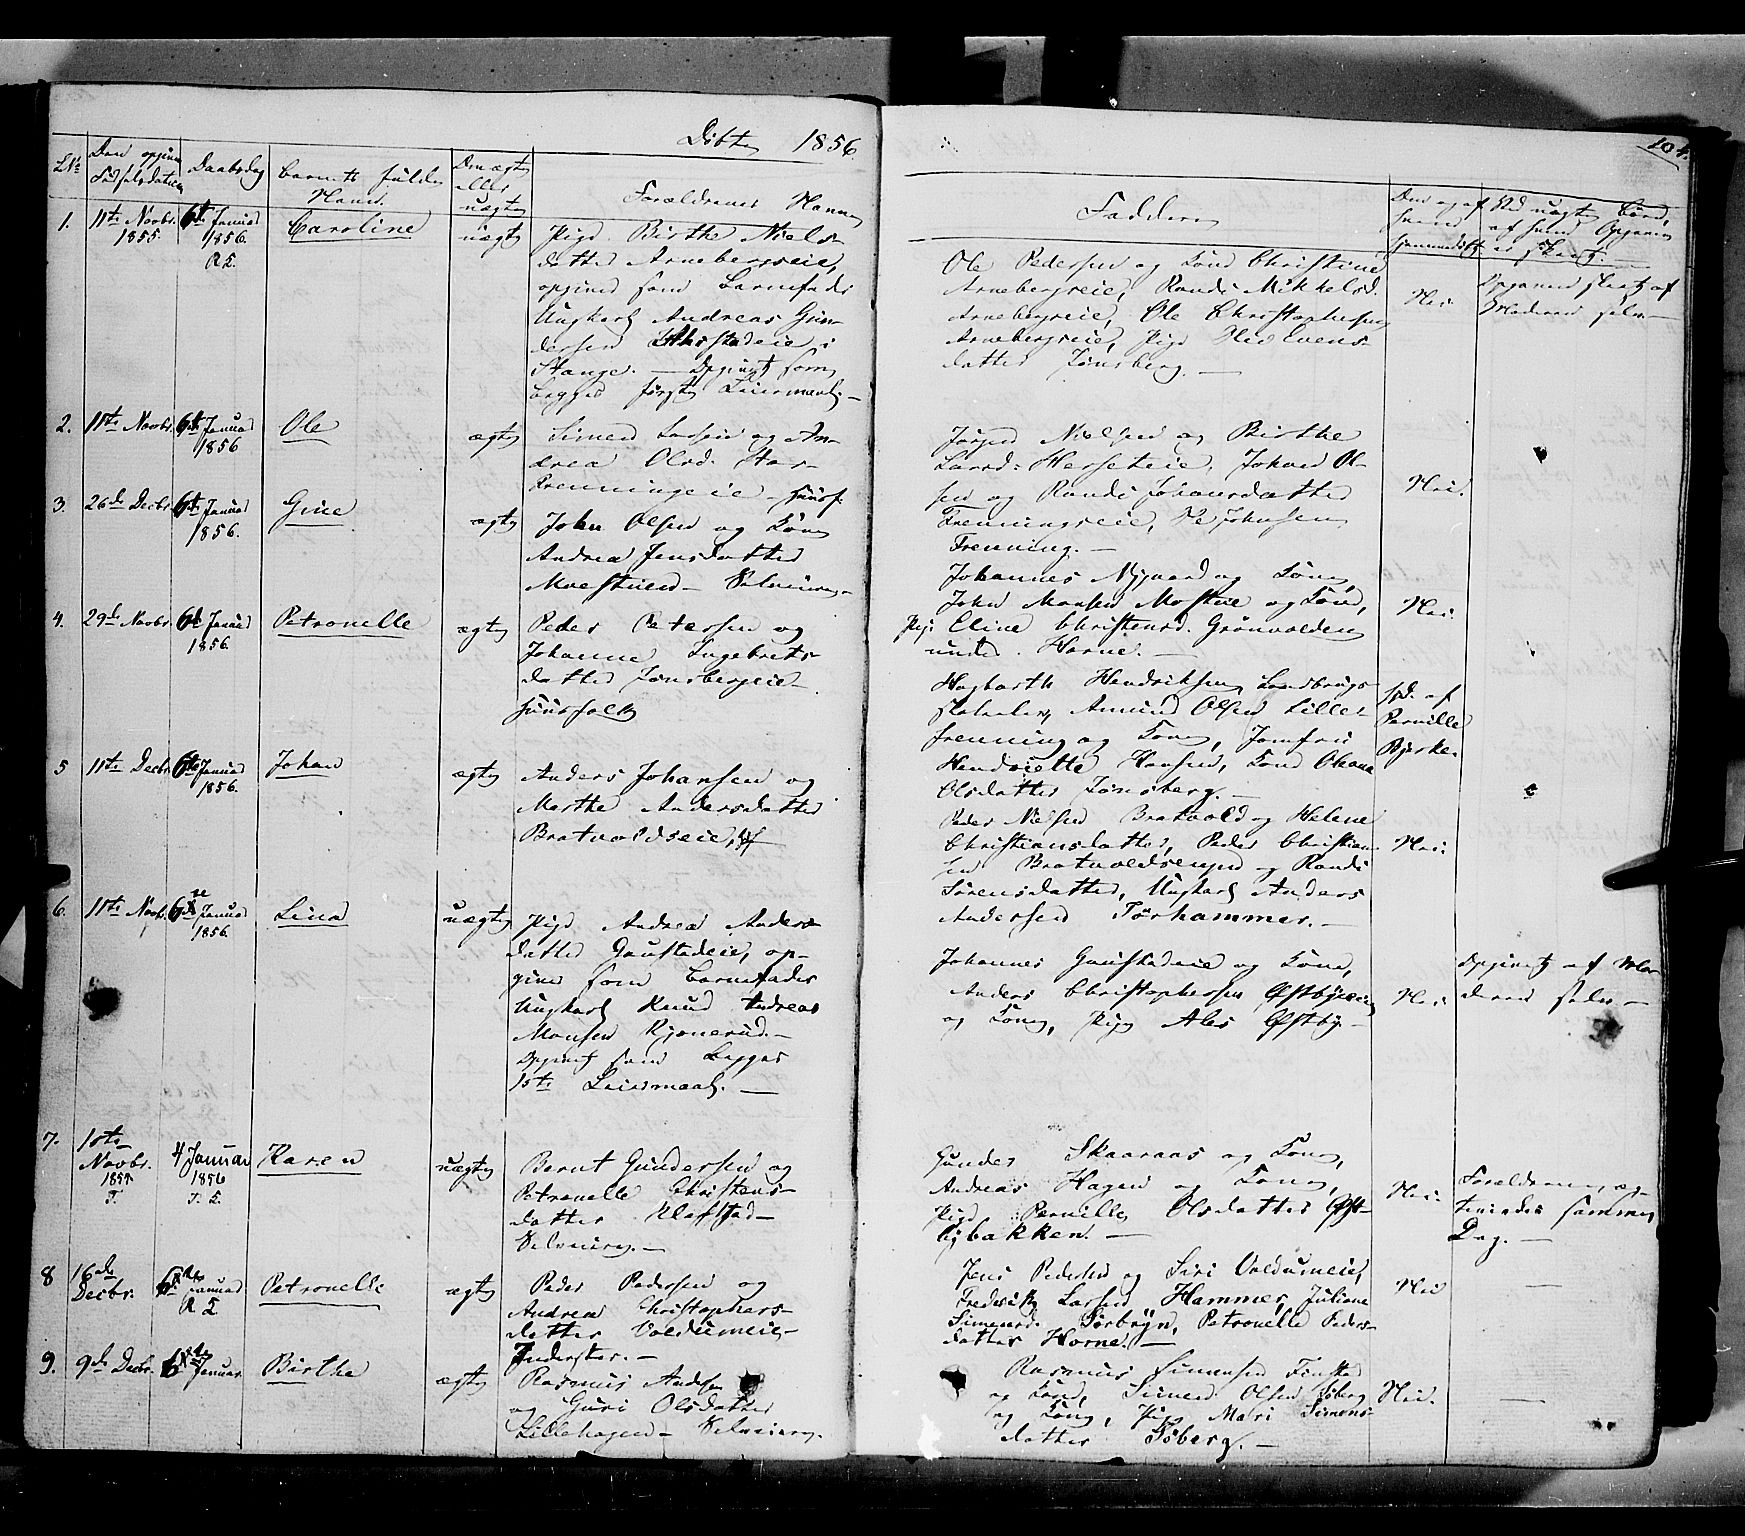 Døbte 1856.
104.
L.No
Den opgivne Fødselsdatum
Daabsdag
Barnets fulde Navn.
Om ægte eller uægte
Forældrenes Navne
Faddere
1.
11te Novbr. 1855.
6te Januar 1856. R. E.
Caroline
uægte
Pige Birthe Niels-
datter Arnebergseie,
opgiven som Barnefader
Ungkarl Andreas Gun-
dersen
i
Stange. — Opgivet som
begges første Leiermaal. —
Ole Pedersen og Kone Christine
Arnebergseie, Randi Mikkelsd.
Arnebergseie, Ole Christophersen
Arnebergseie, Pige
datter Jønsberg. —
Nei.
Opgaven skeet af
Moderen selv —
2.
11te Novbr.
6te Januar 1856
Ole
ægte
Simen Larsen og An-
drea Olsd. Stor-
frenningeie — Huusf.
Jørgen Nielsen og Birthe
Larsd: Hersæteie, Johan Ol-
sen og Randi Johansdatter
Frenningseie, Johnsen
Frenning. —
Nei.
3.
26de Decbr.
6te Januar 1856.
Gine
ægte
John Olsen og Kone
Andrea Jensdatter
Moestuen — Selveiere. —
Johannes Nygaard og Kone,
John Monsen Mostue og Kone,
Pige Eline Christensd. Grønvolden
under Horne. —
Nei.
4.
29de Novbr.
6te Januar 1856.
Petronelle
ægte
Peder Petersen og
Johanne Ingebrets-
datter Jønsbergeie —
Huusfolk
Hagbarth Hendriksen, Landbrugs-
skoleelev, Amund Olsen Lille-
frenning og Kone, Jomfru
Hendriette Hansen, Kone Oleana
Olsdatter Jønsberg. —
hjd. af
Pernille
Bjerke.
5
11te Decbr.
6te Januar 1856.
Johan
ægte
Anders Johansen og
Marthe Andersdatter
Bratvoldseie, Hf
Peder Nielsen Bratvold og Helene
Christiansdatter, Peder Christian-
sen Bratvoldsengen og Randi
Sørensdatter, Ungkarl Anders
Andersen Torhammer. —
Nei.
6.
11te Novbr.
6te Januar 1856.
Lina
uægte
Pige Andrea Anders-
datter Gaustadeie, op-
given som Barnefader
Ungkarl Knud Andreas
Monsen Kjonerud. —
Opgivet som Begges
1ste Leiermaal. —
Johannes Gaustadeie og Kone,
Anders Christophersen Østbyeie
og Kone, Pige Ales Østby. —
Nei
Opgivet af Mo-
deren selv —
7.
10te Novbr. 1855. T.
4 Januar 1856 T. E.
Karen
uægte
Bernt Gundersen og
Petronelle Christens-
datter Klafstad —
Selveiere. —
Gunder Skaaraas og Kone,
Andreas Hagen og Kone,
Pige Pernille Olsdatter Øst-
bybakken. —
Nei.
Forældrene æg-
teviedes samme
Dag. —
8
16de Decbr.
6te Januar R. E.
Petronelle
ægte
Peder Pedersen og
Andrea Christophers-
datter Voldumeie —
Inderster. —
Jens Pedersen og Siri Voldumeie,
Frederik Larsen Hammer, Juliane
Simensd. Sørbryn, Petronelle Peders-
datter Horne. —
Nei
—
9.
9de Decbr.
6te Januar.
Birthe
ægte
Rasmus Andersen
og Guri Olsdatter
Lillehagen — Selveiere.
Rasmus Simensen Finstad
og Kone, Simen Olsen Soberg
og Kone, Pige Mari Simens-
datter Soberg. —
Nei.
—